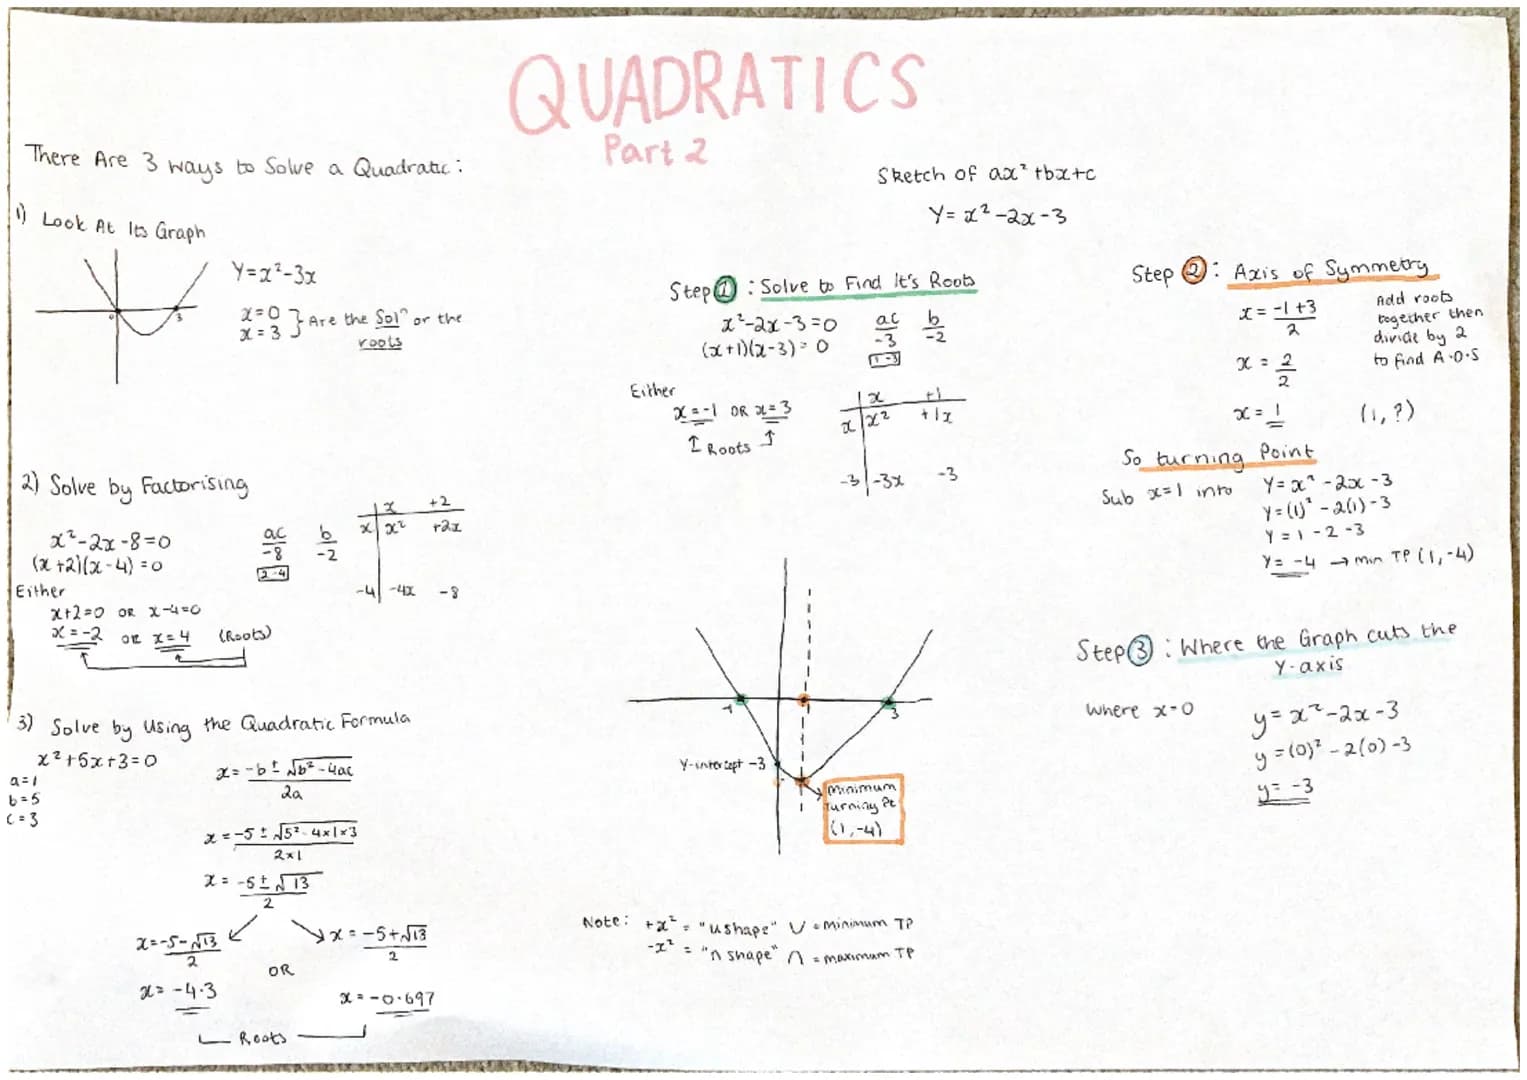 QUADRATICS
Part 2
There Are 3 ways to Solve a Quadratic:
1) Look At Its Graph
Y=x²-3x
x=0
x=3 } Are the Solⁿ or the
roots
0 3
2) Solve by Factorising
x²-2x-8=0
(x+2)(x-4)=0
ac b
-8 -2
2 -4
x +2
x x² +2x
-4 -4x -8
Either
x+2=0 OR x-4=0
x=-2 OR x=4 (Roots)
3) Solve by Using the Quadratic Formula
x²+5x+3=0
a=1
b=5
c=3
x=-b±√b²-4ac
2a
x=-5±√5²-4×1×3
2×1
x=-5±√13
2
x=-5-√13
2
x=-4.3
OR
x=-5+√13
2
x=-0.697
Roots
Sketch of ax²+bx+c
Y=x²-2x-3
Step 1: Solve to Find It's Roots
x²-2x-3=0
(x+1)(x-3)=0
ac b
-3 -2
1 -3
Either
x=-1 OR x=3
↑ Roots ↑
x +1
x x² +1x
-3 -3x -3
-1 3
Y-intercept -3
Minimum
Turning Pt
(1,-4)
Note: +x² = "u shape" ∪ = minimum TP
-x² = "n shape" ∩ = maximum TP
Step 2: Axis of Symmetry
x=-1+3
2
x=2
2
x=1 (1,?)
Add roots
together then
divide by 2
to find A.O.S
So turning Point
Sub x=1 into Y=x²-2x-3
Y=(1)²-2(1)-3
Y=1-2-3
Y=-4 → min TP (1,-4)
Step 3: Where the Graph cuts the
Y-axis
Where x=0 y=x²-2x-3
y=(0)²-2(0)-3
y=-3